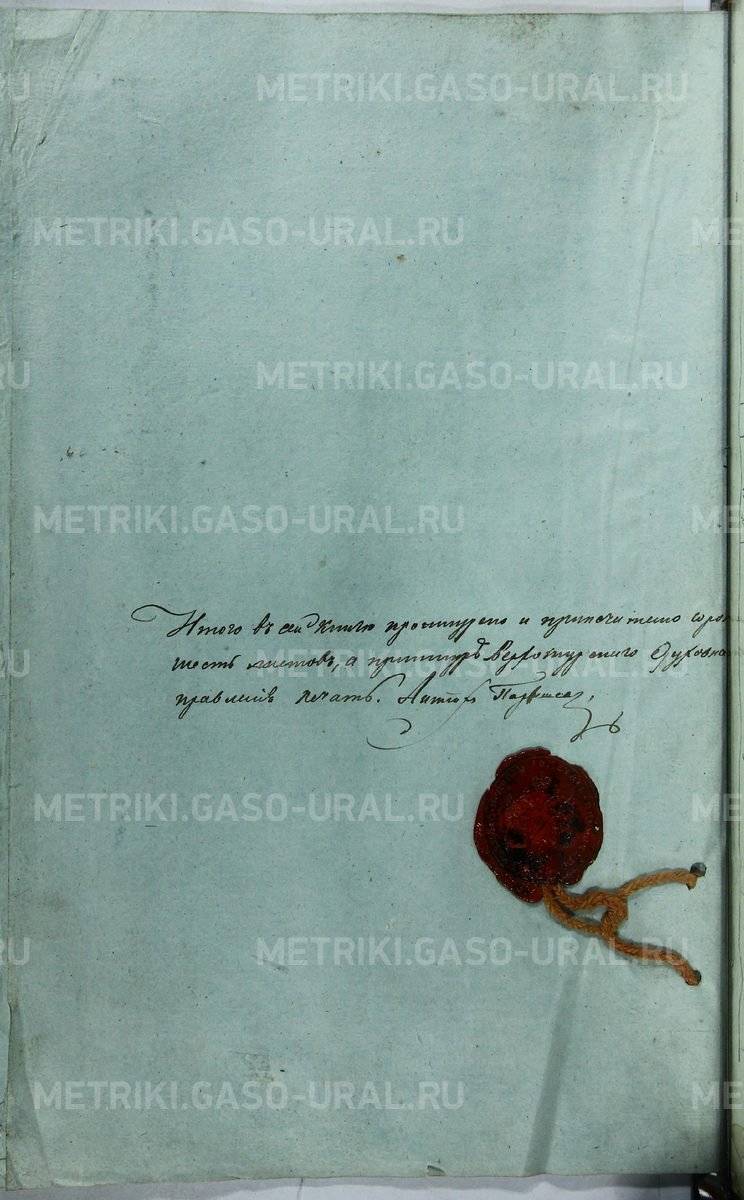 METRIKI.GASO-URAL.RU
METRIKI.GASO-URAL.RU
METRIKI.GASO-URAL.RU
METRIKI.GASO-URAL.RU
Итого въ сей книгѣ прошнурено и припечатано сорок
шесть листовъ, а при шнурѣ Верхотурскаго Духовна
правленія печать.
METRIKI.GASO-URAL.RU
METRIKI.GASO-URAL.RU
METRIKI.GASO-URAL.RU